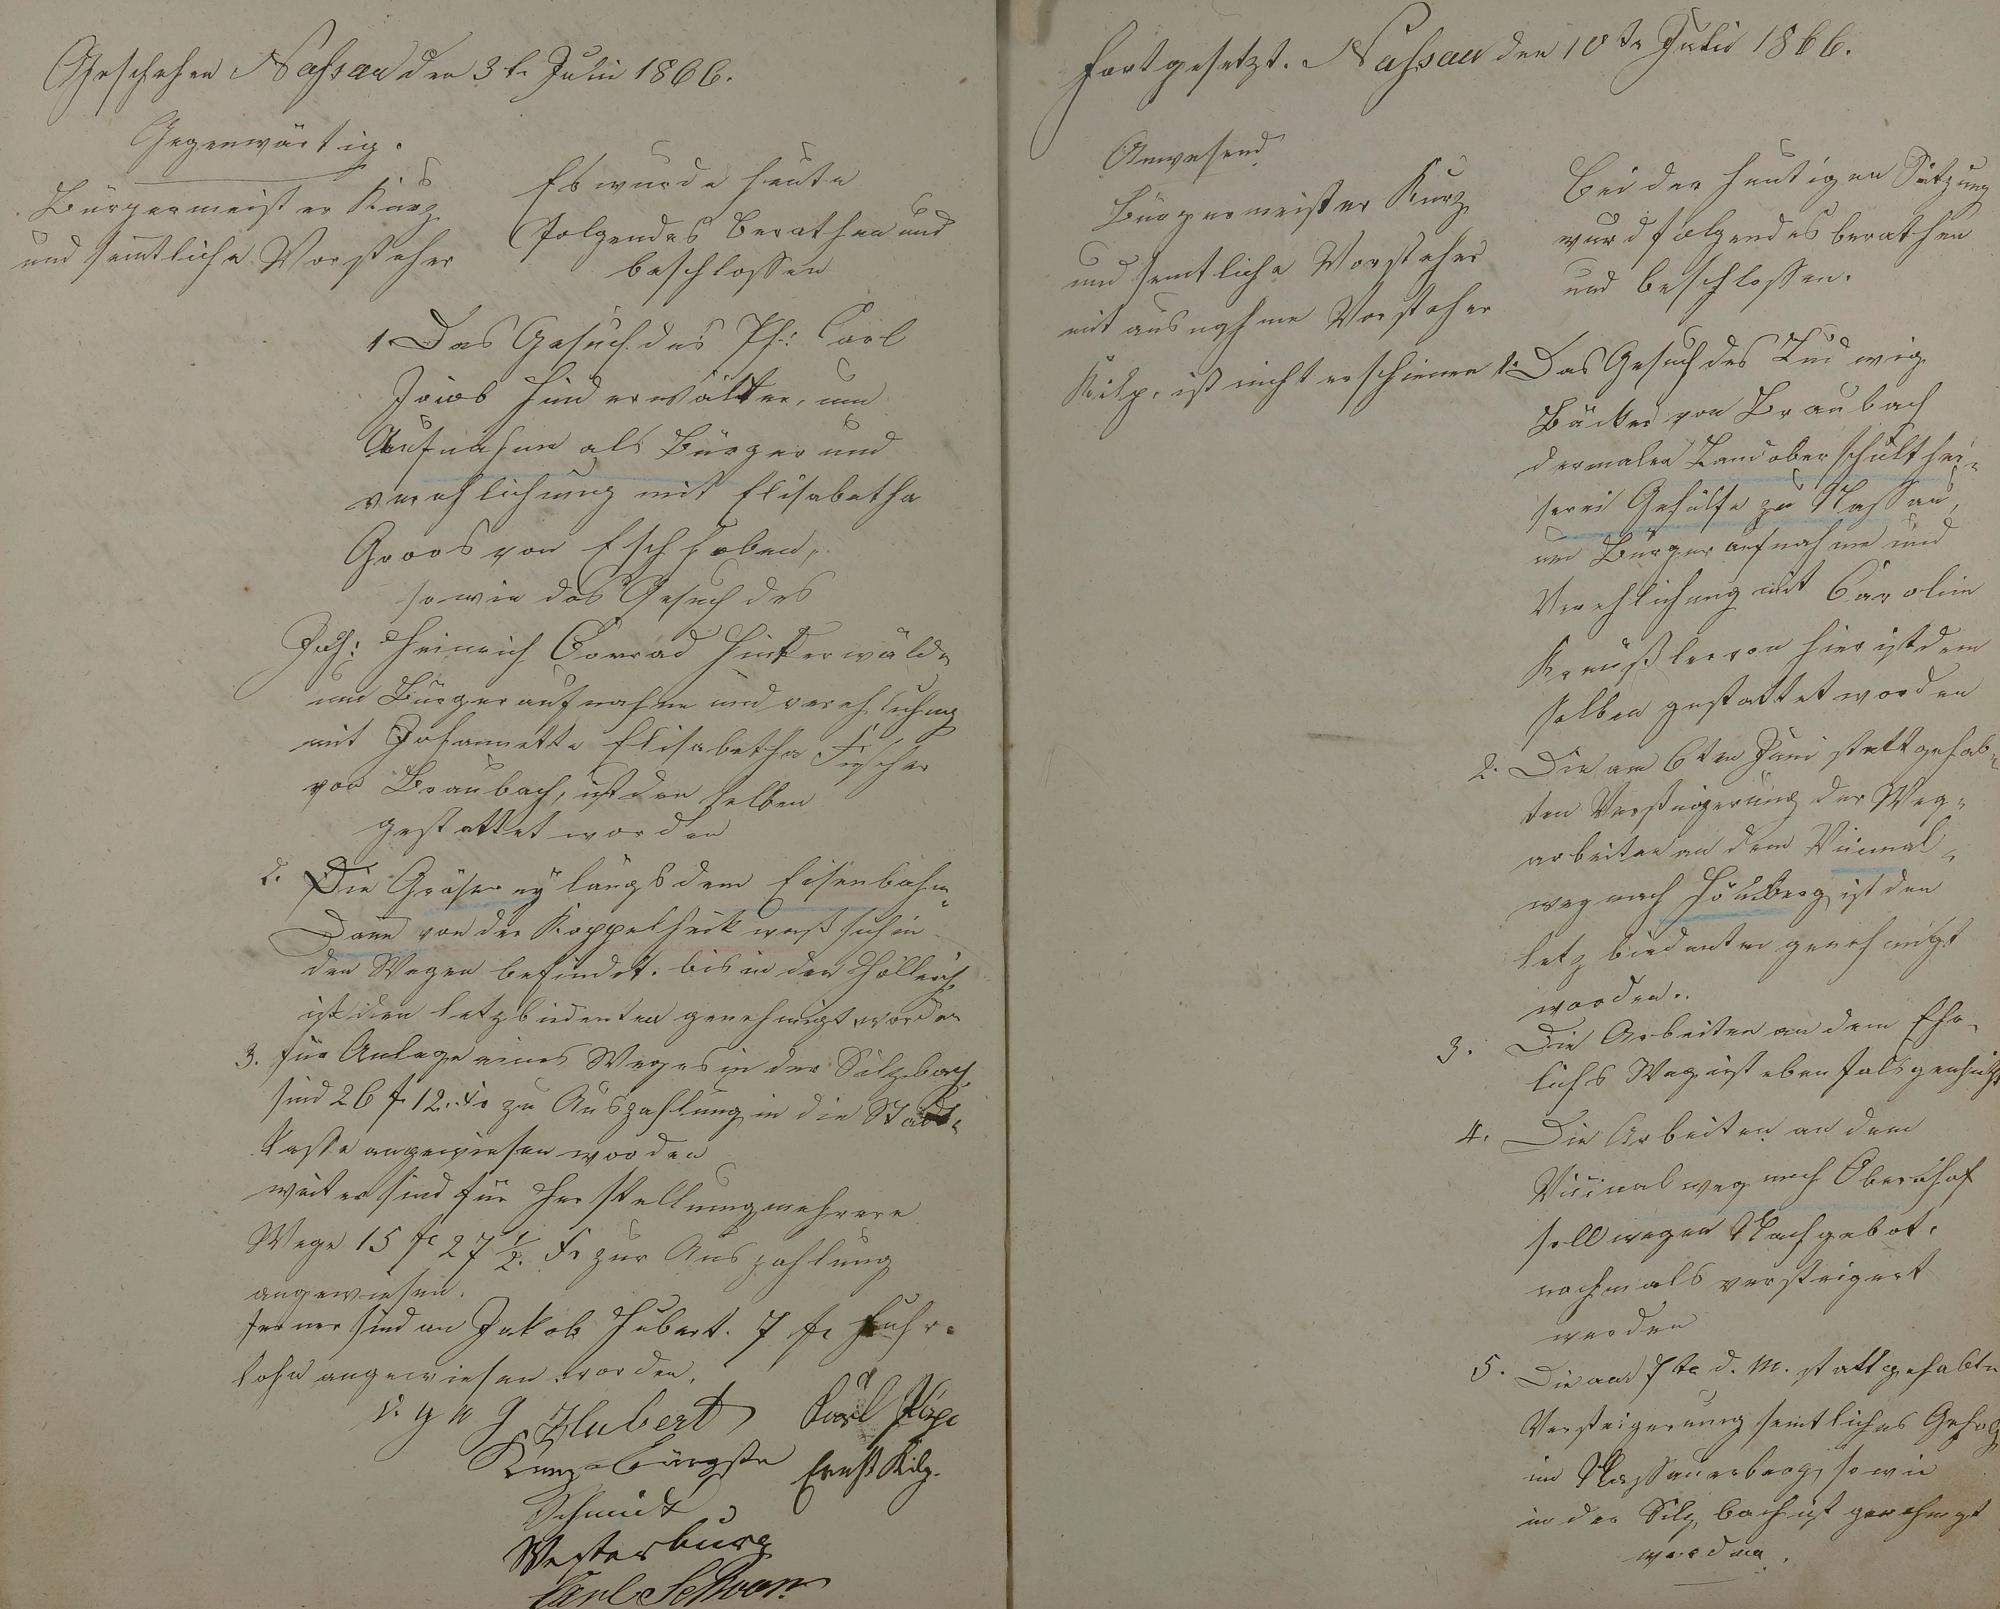 Geschehen Nassau den 3t. Juli 1866.
Gegenwärtig.
Bürgermeister Kurz
und semtliche Vorsteher
Es wurde heute
folgendes berathen und
beschlossen
1. Das Gesuch des Ph: Carl
Hinderwälter, um
Aufnahme als Bürger und
verehlichung mit Elisabetha
Groos von Eschhoben,
sowie das Gesuch des
Joh: Heinrich Conrad Hinterwälder
um Bürgeraufnahme und verehlichung
mit Johannette Elisabetha Fischer
von Braubach, ist denselben
gestattet worden
2. Die Gräserey längs dem Eisenbahn-
Dam von der Koppelheck
den Wegen befindet. bis in den Hollerich
ist den letzbiedenten genehmigt worden
3. für Anlage eines Weges in der Sulzbach
sind 26 f 12 zu Auszahlung in die Stadt-
kasse angewiesen worden
weiter sind für Herstellung mehrere
Wege 15 f 27 1/2 Kr zur Auszahlung
angewiesen.
ferner sind an Jakob Hubert. 7 f Fuhr-
lohn angewiesen worden.
v. g. u. g. Hubert Karl
Kurz Bürgstr Ernst Kilp.
Schmidt
Westerburg
Carl Schwarz
fortgesetzt. Nassau den 10te Juli 1866.
Anwesend
Bürgermeister Kurz
und semtliche Vorsteher
mit ausnahme Vorsteher
Kilp. ist nicht erschienen
Bei der heutigen Sitzung
wurd folgendes berathen
und beschlossen.
1. Das Gesuch des Ludwig
Bäcker von Braubach
dermalen Landoberschulthei-
serei Gehülfe zu Nassau,
um Bürgeraufnahme und
Verehlichung mit Carolin
von hier ist dem
selben gestattet worden
2. Die am 6ten Juni stattgehab-
ten Versteigerung der Weg-
arbeiten an dem Vicinal-
weg nach Hömberg ist den
letzbiedenten genehmigt
worden.
3. Die Arbeiten an dem Ehr-
lichs Weg ist ebenfals genehmigt
4. Die Arbeiten an dem
Vicinalweg nach Obernhof
soll wegen Nachgebot.
nochmals versteigert
werden
5. Die am 7te d. M. stattgehabte
Versteigerung semtliches Geholz
im Nassauerberg, sowie
in der Sulzbach ist genehmigt
worden.